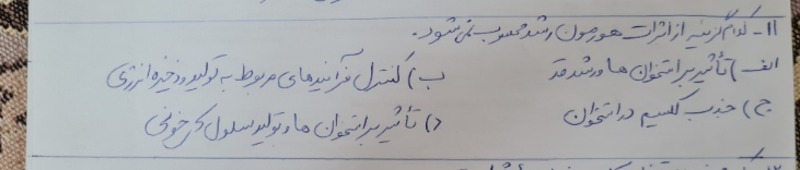 ۱۱- کدام گزینه از اثرات هورمون رشد محسوب نمی شود.
الف) تأثیر بر استخوان ها و رشد قد    ب) کنترل فرآیندهای مربوط به تولید و ذخیره انرژی
ج) جذب کلسیم در استخوان    د) تأثیر بر استخوان ها و تولید سلول های خونی